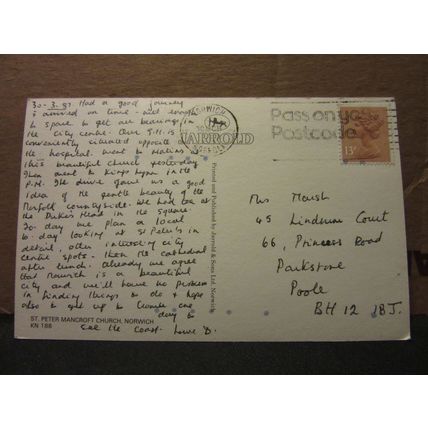 30-3-87. Had a good journey
& arrived on time - not enough
to spare to get our bearings in
the city centre. Our G.H. is
conveniently situated opposite
the hospital. Went to Matins at
this beautiful church yesterday
then went to Kings Lynn in the
P.M. The drive gave us a good
idea of the gentle beauty of the
Norfolk countryside. We had tea at
the Duke's Head in the Square.
To-day we plan a local
day looking at St Peter's in
detail, other interesting city
centre spots - then the cathedral
after lunch. Already we agree
that Norwich is a beautiful
city and we'll have no problem
in finding things to do & hope
also to get up to
day to
see the coast. Love D.
ST. PETER MANCROFT CHURCH, NORWICH
KN 188
JARROLD
Printed and Published by Jarrold & Sons Ltd, Norwich
NORWICH
Pass on your
Postcode
13
Mrs
45 Lindsum Court
66, Princess Road
Parkstone
Poole
BH 12 1BJ.